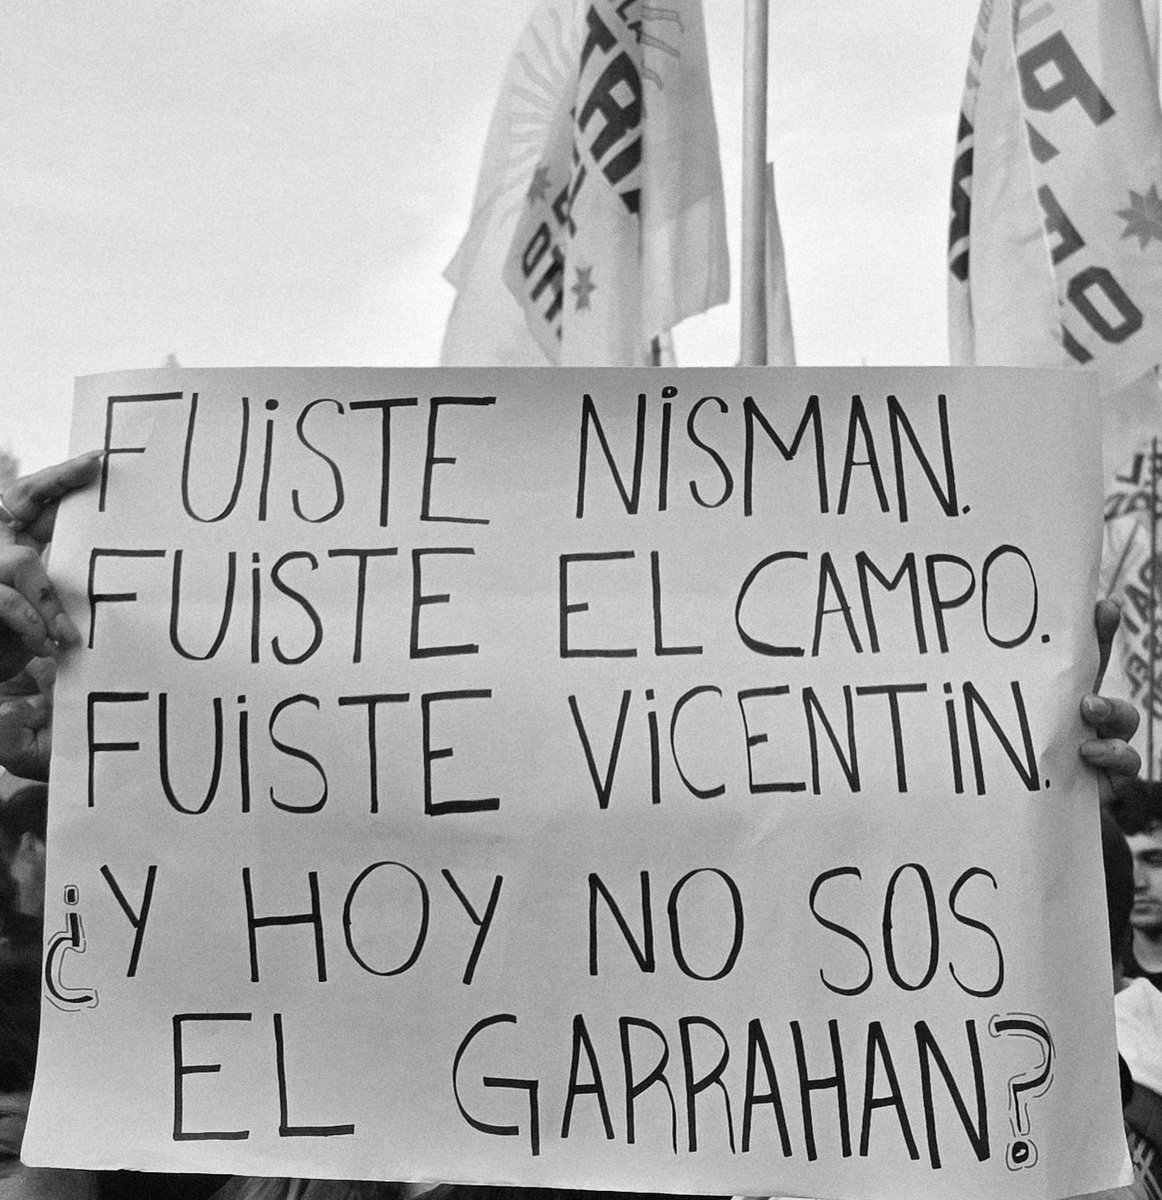 FUiSTE NiSMAN.
FUiSTE EL CAMPO.
FUiSTE ViCENTiN.
¿Y HOY NO SOS
EL GARRAHAN?